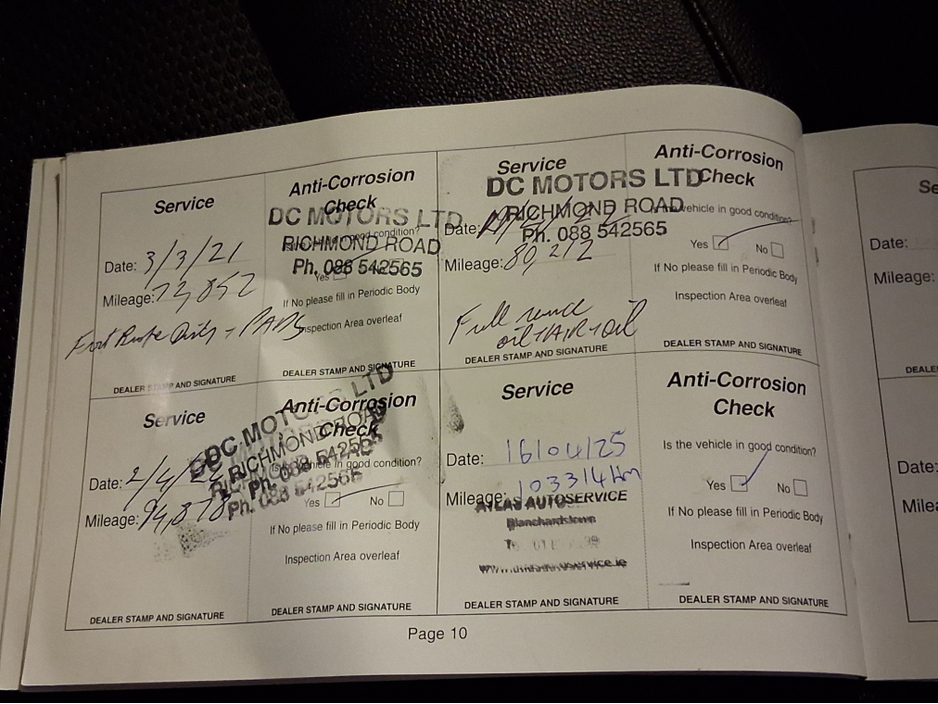 Service
Anti-Corrosion
Check
DC MOTORS LTD
RICHMOND ROAD
Ph. 088 542565
good condition?
Date: 3/3/21
Mileage: 72,852
Yes
If No please fill in Periodic Body
Inspection Area overleaf
+ PADS
DEALER STAMP AND SIGNATURE
DEALER STAMP AND SIGNATURE
Service
Anti-Corrosion
Check
DC MOTORS LTD
RICHMOND ROAD
Ph. 088 542565
the vehicle in good condition?
Date:
Mileage: 80,212
Yes
No
If No please fill in Periodic Body
Inspection Area overleaf
Full
oil+AIR+oil
DEALER STAMP AND SIGNATURE
DEALER STAMP AND SIGNATURE
Service
Anti-Corrosion
Check
DC MOTORS LTD
RICHMOND ROAD
Ph. 088 542565
Ph. 088 542565
vehicle in good condition?
Date: 2/4/
Mileage: 94,878
Yes
No
If No please fill in Periodic Body
Inspection Area overleaf
DEALER STAMP AND SIGNATURE
DEALER STAMP AND SIGNATURE
Service
Anti-Corrosion
Check
Is the vehicle in good condition?
Date: 16/04/25
Mileage: 103314km
Yes
No
ATLAS AUTOSERVICE
Blanchardstown
If No please fill in Periodic Body
Inspection Area overleaf
DEALER STAMP AND SIGNATURE
DEALER STAMP AND SIGNATURE
Page 10
Se
Date:
Mileage:
DEALE
Date:
Milea